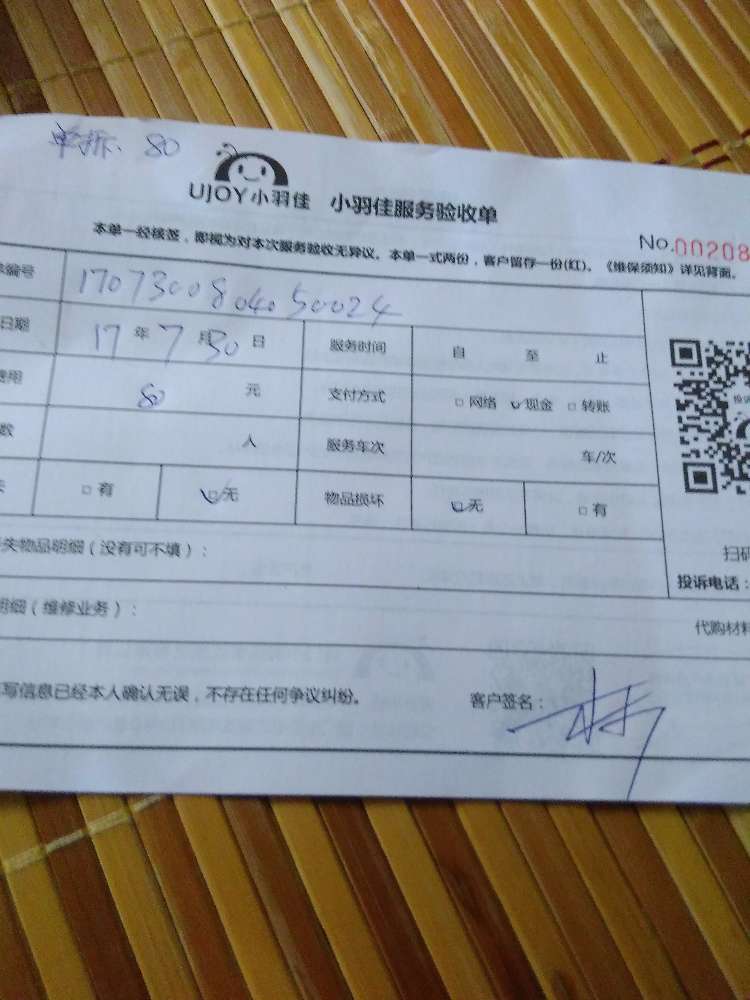 单拆. 80
UJOY小羽佳 小羽佳服务验收单
No.00208
本单一经核签，即视为对本次服务验收无异议。本单一式两份，客户留存一份(红)。《维保须知》详见背面。
编号 1707300804050024
日期 17年7月30日 服务时间 自 至 止
费用 80 元 支付方式 □网络 ✓现金 □转账
数 人 服务车次 车/次
□有 ☑无 物品损坏 ☑无 □有
失物品明细（没有可不填）：
扫码
投诉电话：
明细（维修业务）：
代购材料
写信息已经本人确认无误，不存在任何争议纠纷。 客户签名：